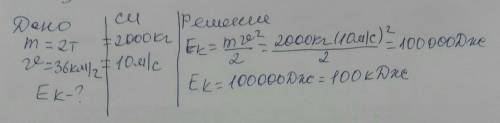 Дано
m = 2т
v = 36км/г
Eк - ?
СИ
= 2000кг
= 10м/с
Решение
Eк = mv²/2 = 2000кг(10м/с)²/2 = 100000Дж
Eк = 100000Дж = 100кДж